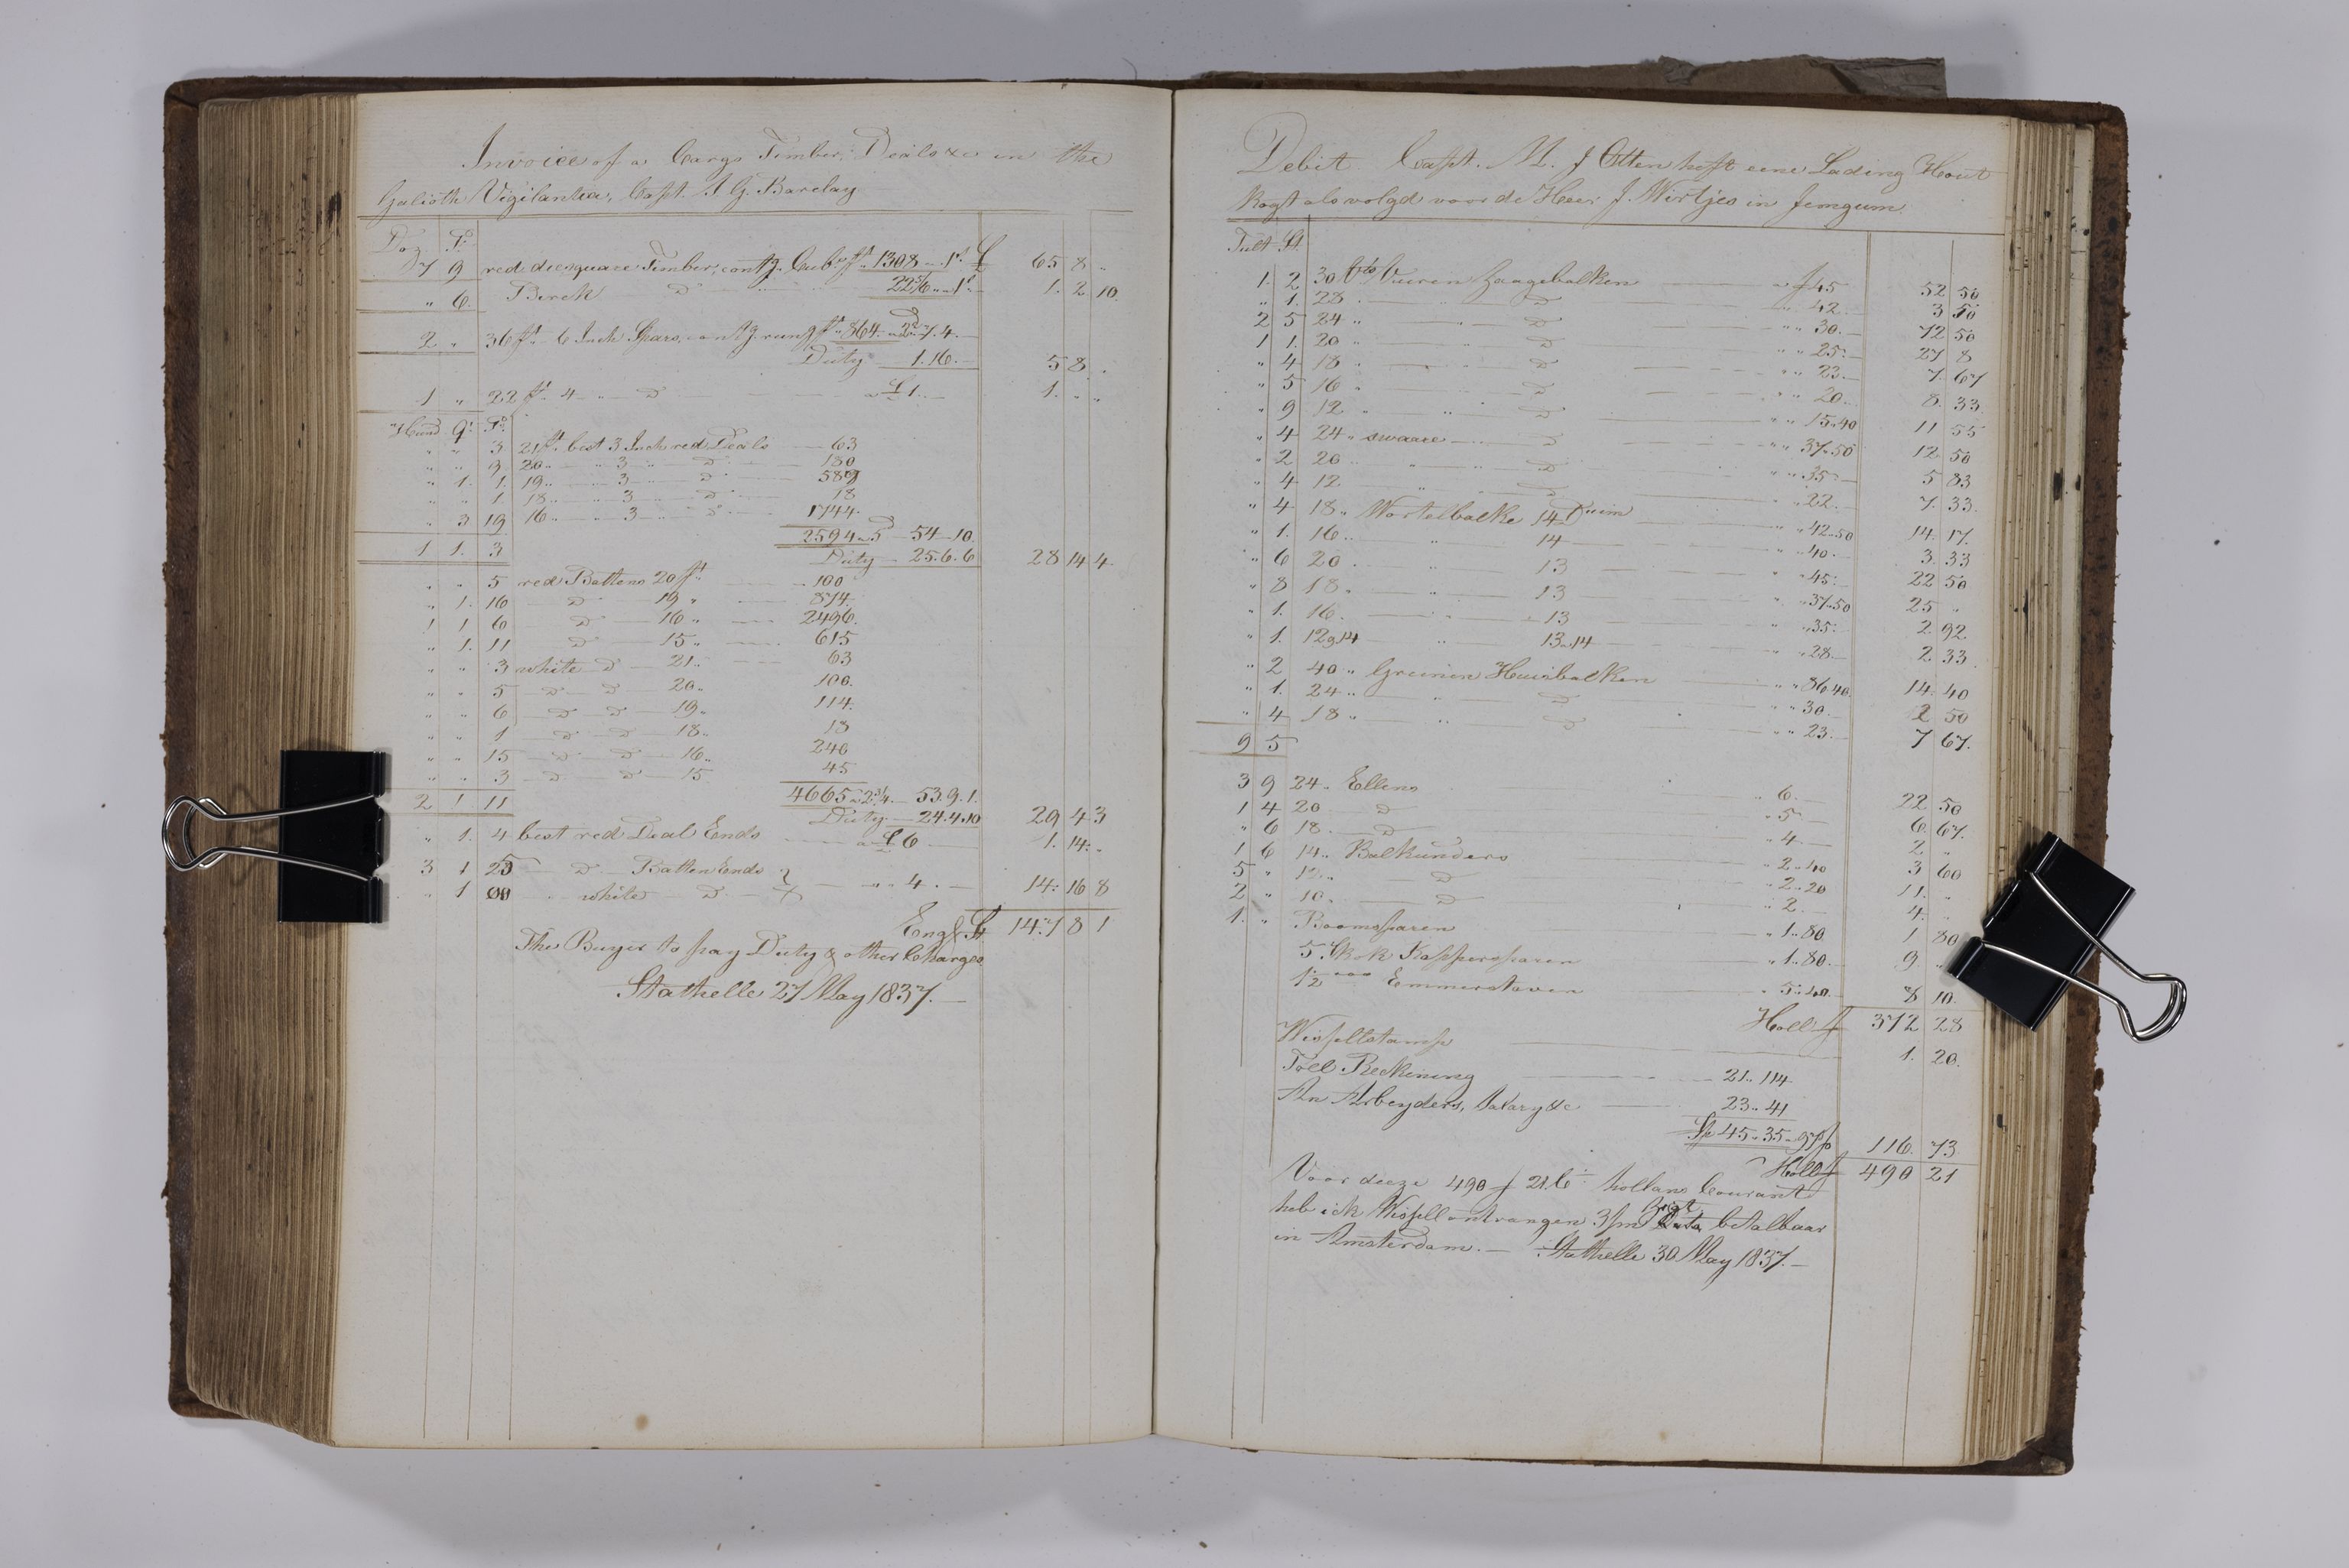 Invoice of a Cargo Timber, Deals &c in the
Galioth Vigilantia, Capt. A. G. Barclay
Doz. Ps.
7 9 red diesquare Timber, contg. Cub. ft. 1308 - 1s. £ 65 8 "
" 6. Birch D 22 5/6 " 1s. 1. 2 10.
2 " 36 ft. 6 Inch Spars, contg. rung ft. 864. a 2d. 7. 4.
Duty 1. 16. 5 8 "
1 " 22 ft. 4 " D a £1. 1. " "
Hund. Q. Ps.
" " 3 21 ft. best 3 Inch red Deals 63
" " 9 20 " " 3 " D 180
" 1. 1. 19 " " 3 " D 589
" " 1 18 " " 3 " D 18
" 3 19 16 " " 3 " D 1744.
2594 a 5d 54 10.
1 1. 3 Duty 25. 6. 6 28 14 4.
" " 5 red Battens 20 ft. 100
" 1. 16 D 19 " 874.
1 1 6 D 16 " 2496.
" 1. 11 D 15 " 615
" " 3 white D 21 " 63
" " 5 D D 20 " 100.
" " 6 D D 19 " 114.
" " 1 D D 18 " 18
" " 15 D D 16 " 240
" " 3 D D 15 45
4665 a 2 3/4. 53. 9. 1.
2 1 11 Duty 24. 4. 10 29 4 3
" 1. 4 best red Deal Ends a £6 1. 14. "
3 1 25 D Batten Ends
" 1 00 " white D " " 4. 14. 16 8
Engl. £ 147 8 1
The Buyer to pay Duty & other Charges
Stathelle 27 May 1837.
Debit. Capt. M. J Otten heft eene Lading Hout
Kogt als volgd voor de Heer J. Wirtjes in Jemgum.
Tult St.
1. 2 30 Vto Vueren Zaagebalken a f 45 52 50
" 1. 28 " D " 42. 3 50
2 5 24 " " D " " 30. 72 50
1 1. 20 " " D " " 25. 27 8
" 4 18 " " D " " 23. 7. 67
" 5 16 " " D " " 20. 8. 33.
" 9 12 " " D " " 15.40 11 55
" 4 24 " swaare D " " 37.50 12 50
" 2 20 " " D " " 35. 5 83
" 4 12 " " D " " 22. 7. 33.
" 4 18 " Wortelbalke 14 Duim " 42.50 14. 17.
" 1. 16 " " 14 " 40. 3. 33
" 6 20 " " 13 " 45. 22 50
" 8 18 " " 13 " 37.50 25 "
" 1. 16. " 13 " 35. 2 92.
" 1. 12 a 14 " 13 a 14 " 28. 2 33
" 2 40 " Greinen Huisbalken " " 86.40. 14. 40
" 1. 24 " " D " " 30. 2 50
" 4 18 " " D " " 23. 7 67.
9 5
3 9 24. Ellens " 6. 22 50
1 4 20 D " 5 6. 67.
" 6 18. D " 4 2 "
1 6 14 " Balkunders " 2.40 3 60
5 " 12 " D " 2.20 11. "
2 " 10 " D " 2 4. "
1. " Boomsparen " 1.80 1 80
5 Skok Kappersparen " 1.80. 9. "
1 1/2 Emmerstaven " 5.40. 8 10.
Holl. f 372 28
Wisselstamp 1. 20.
Toll Reckening 21. 114
An Arbeyders, Salary &c 23. 41
Sp 45. 35 a 97 p 116. 73.
Holl f 490 21
Voor deeze 490 f 21 C hollans Courant
heb ick Wissell ontvangen 3/m Data betalbaar
in Amsterdam. Stathelle 30 May 1837.